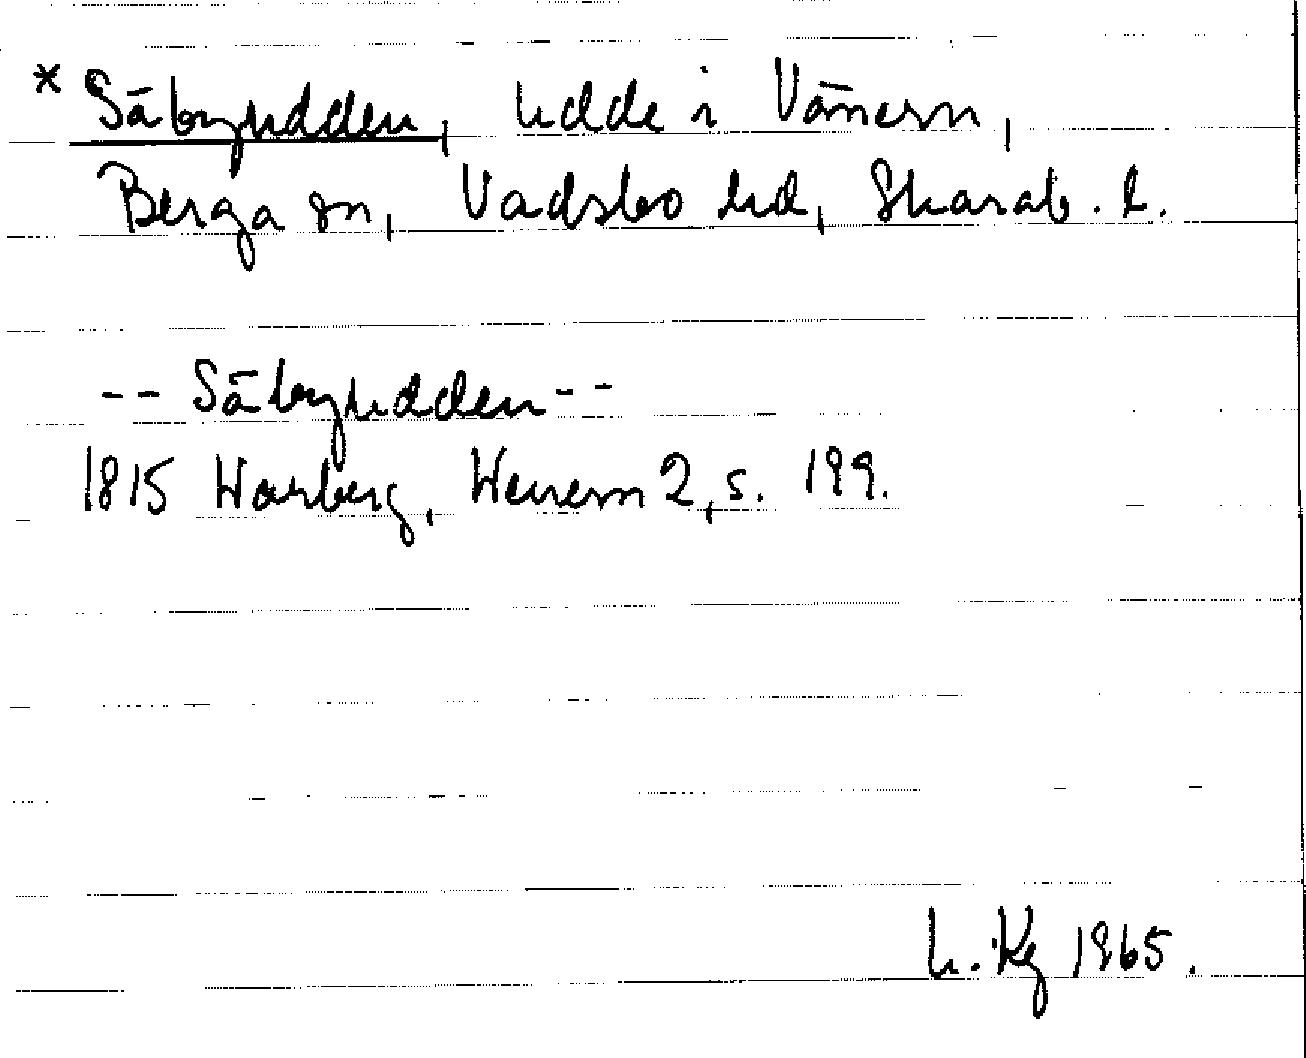 * Säbyudden, Udde i Vänern,
Berga sn, Vadsbo hd, Skarab. l.
-- Säbyudden --
1815 Warberg, Wenern 2, s. 199.
L. Kg 1965.